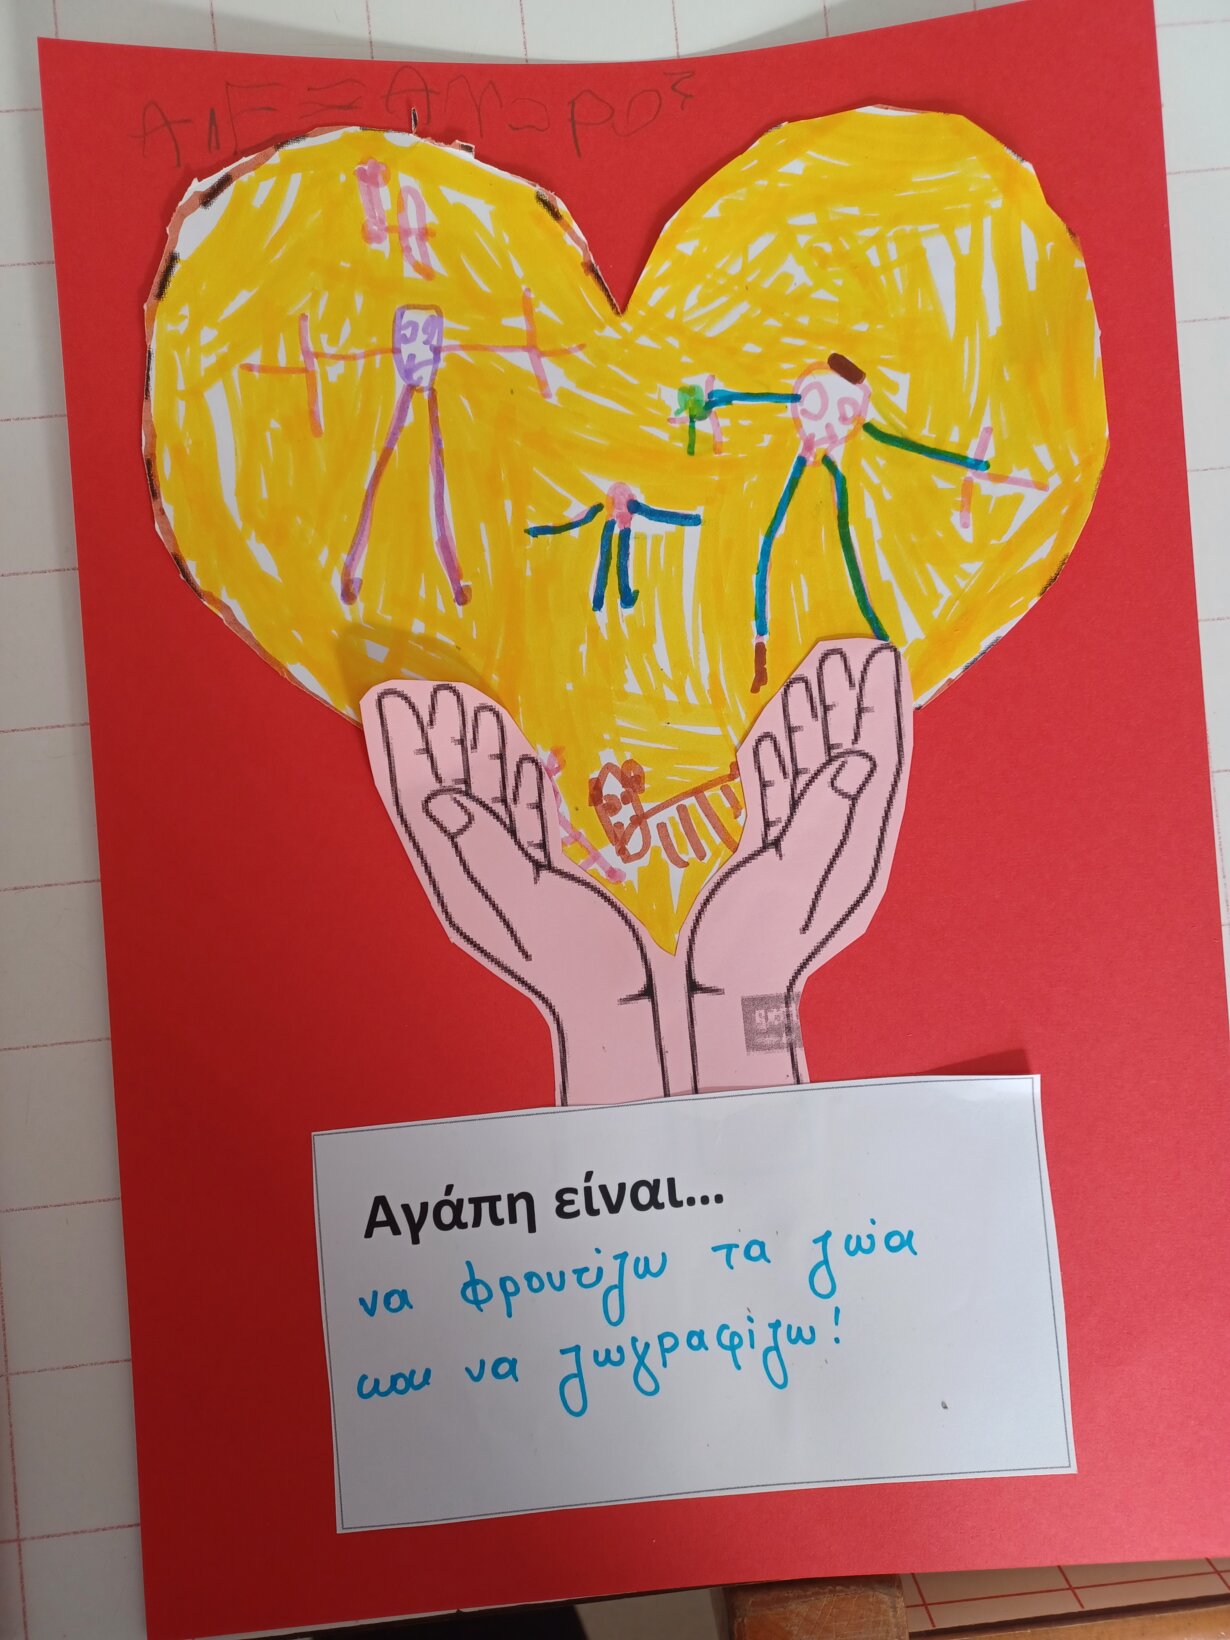 ΑΛΕΞΑΝΔΡΟΣ
Αγάπη είναι...
να φροντίζω τα ζώα
και να ζωγραφίζω!